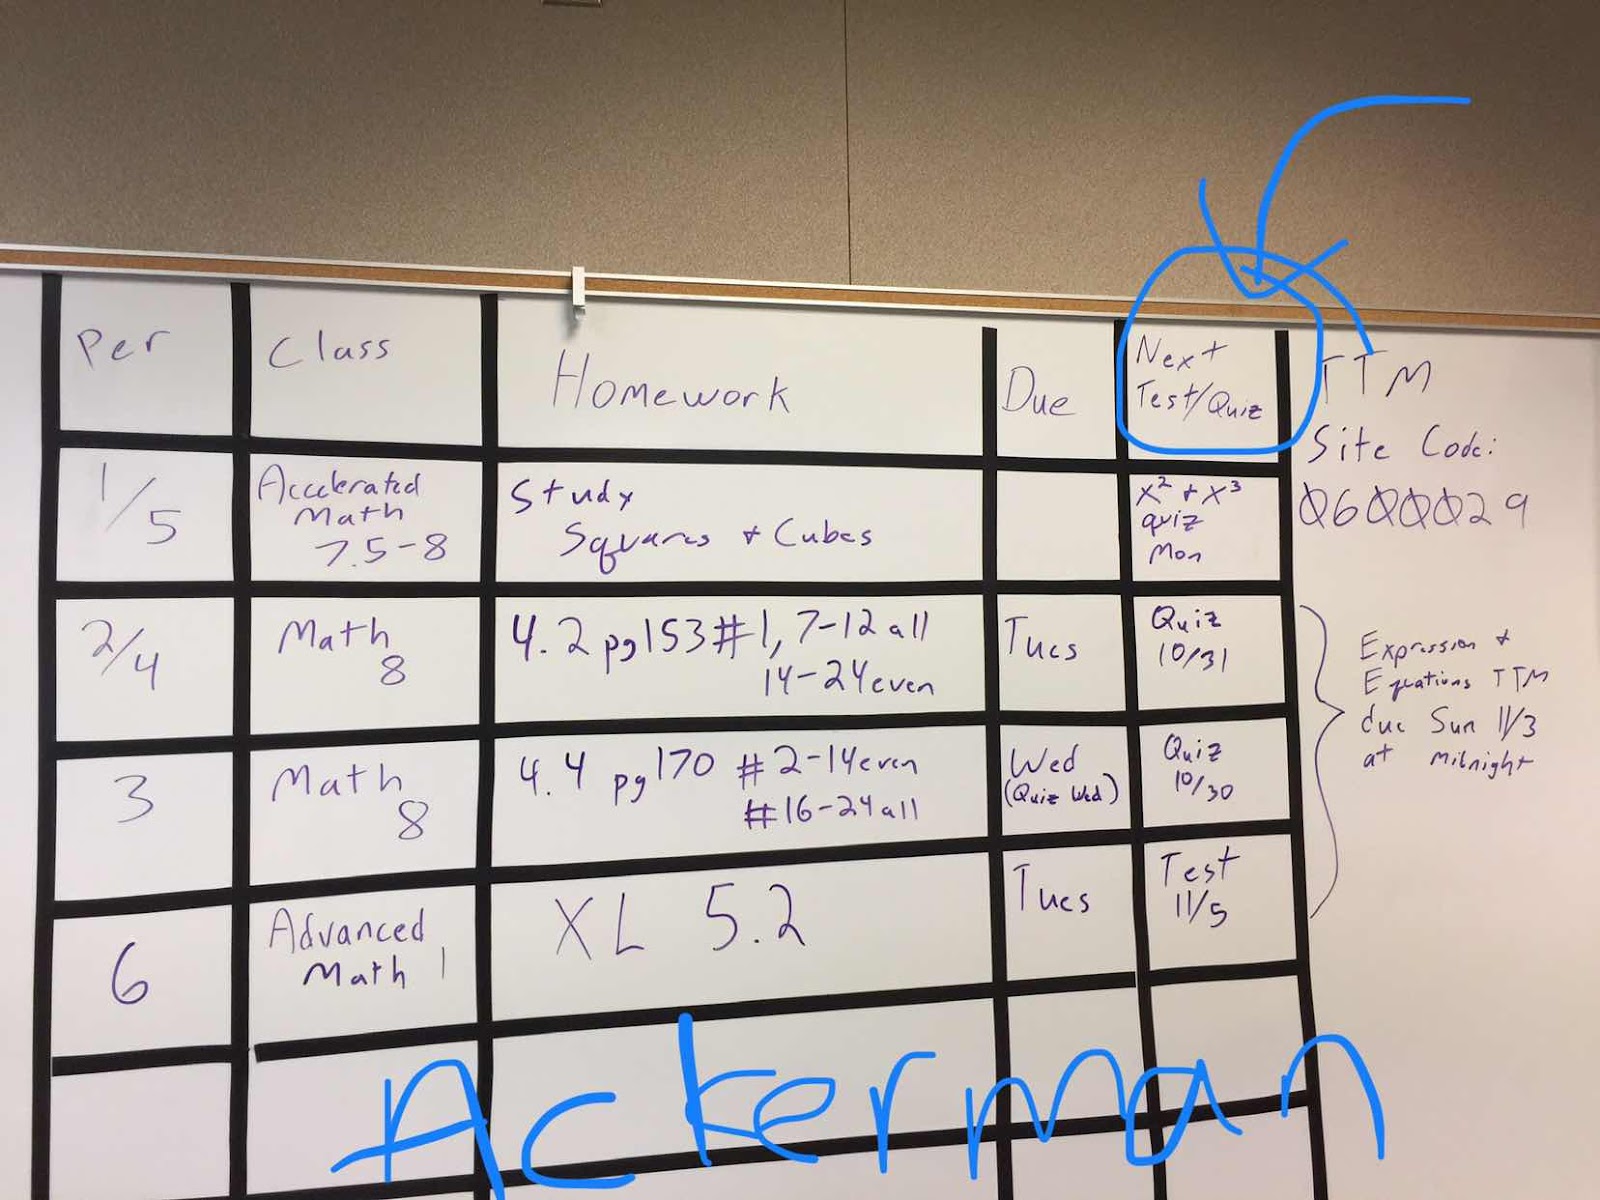 Per
Class
Homework
Due
Next
Test/Quiz
TTM
Site Code:
0600029
1/5
Accelerated
Math
7.5-8
Study
Squares + Cubes
x² + x³
quiz
Mon
2/4
Math
8
4.2 pg153 #1, 7-12 all
14-24 even
Tues
Quiz
10/31
Expression +
Equations TTM
due Sun 11/3
at milnight
3
Math
8
4.4 pg170 #2-14 even
#16-24 all
Wed
(Quiz Wed)
Quiz
10/30
6
Advanced
Math 1
XL 5.2
Tues
Test
11/5
Ackerman